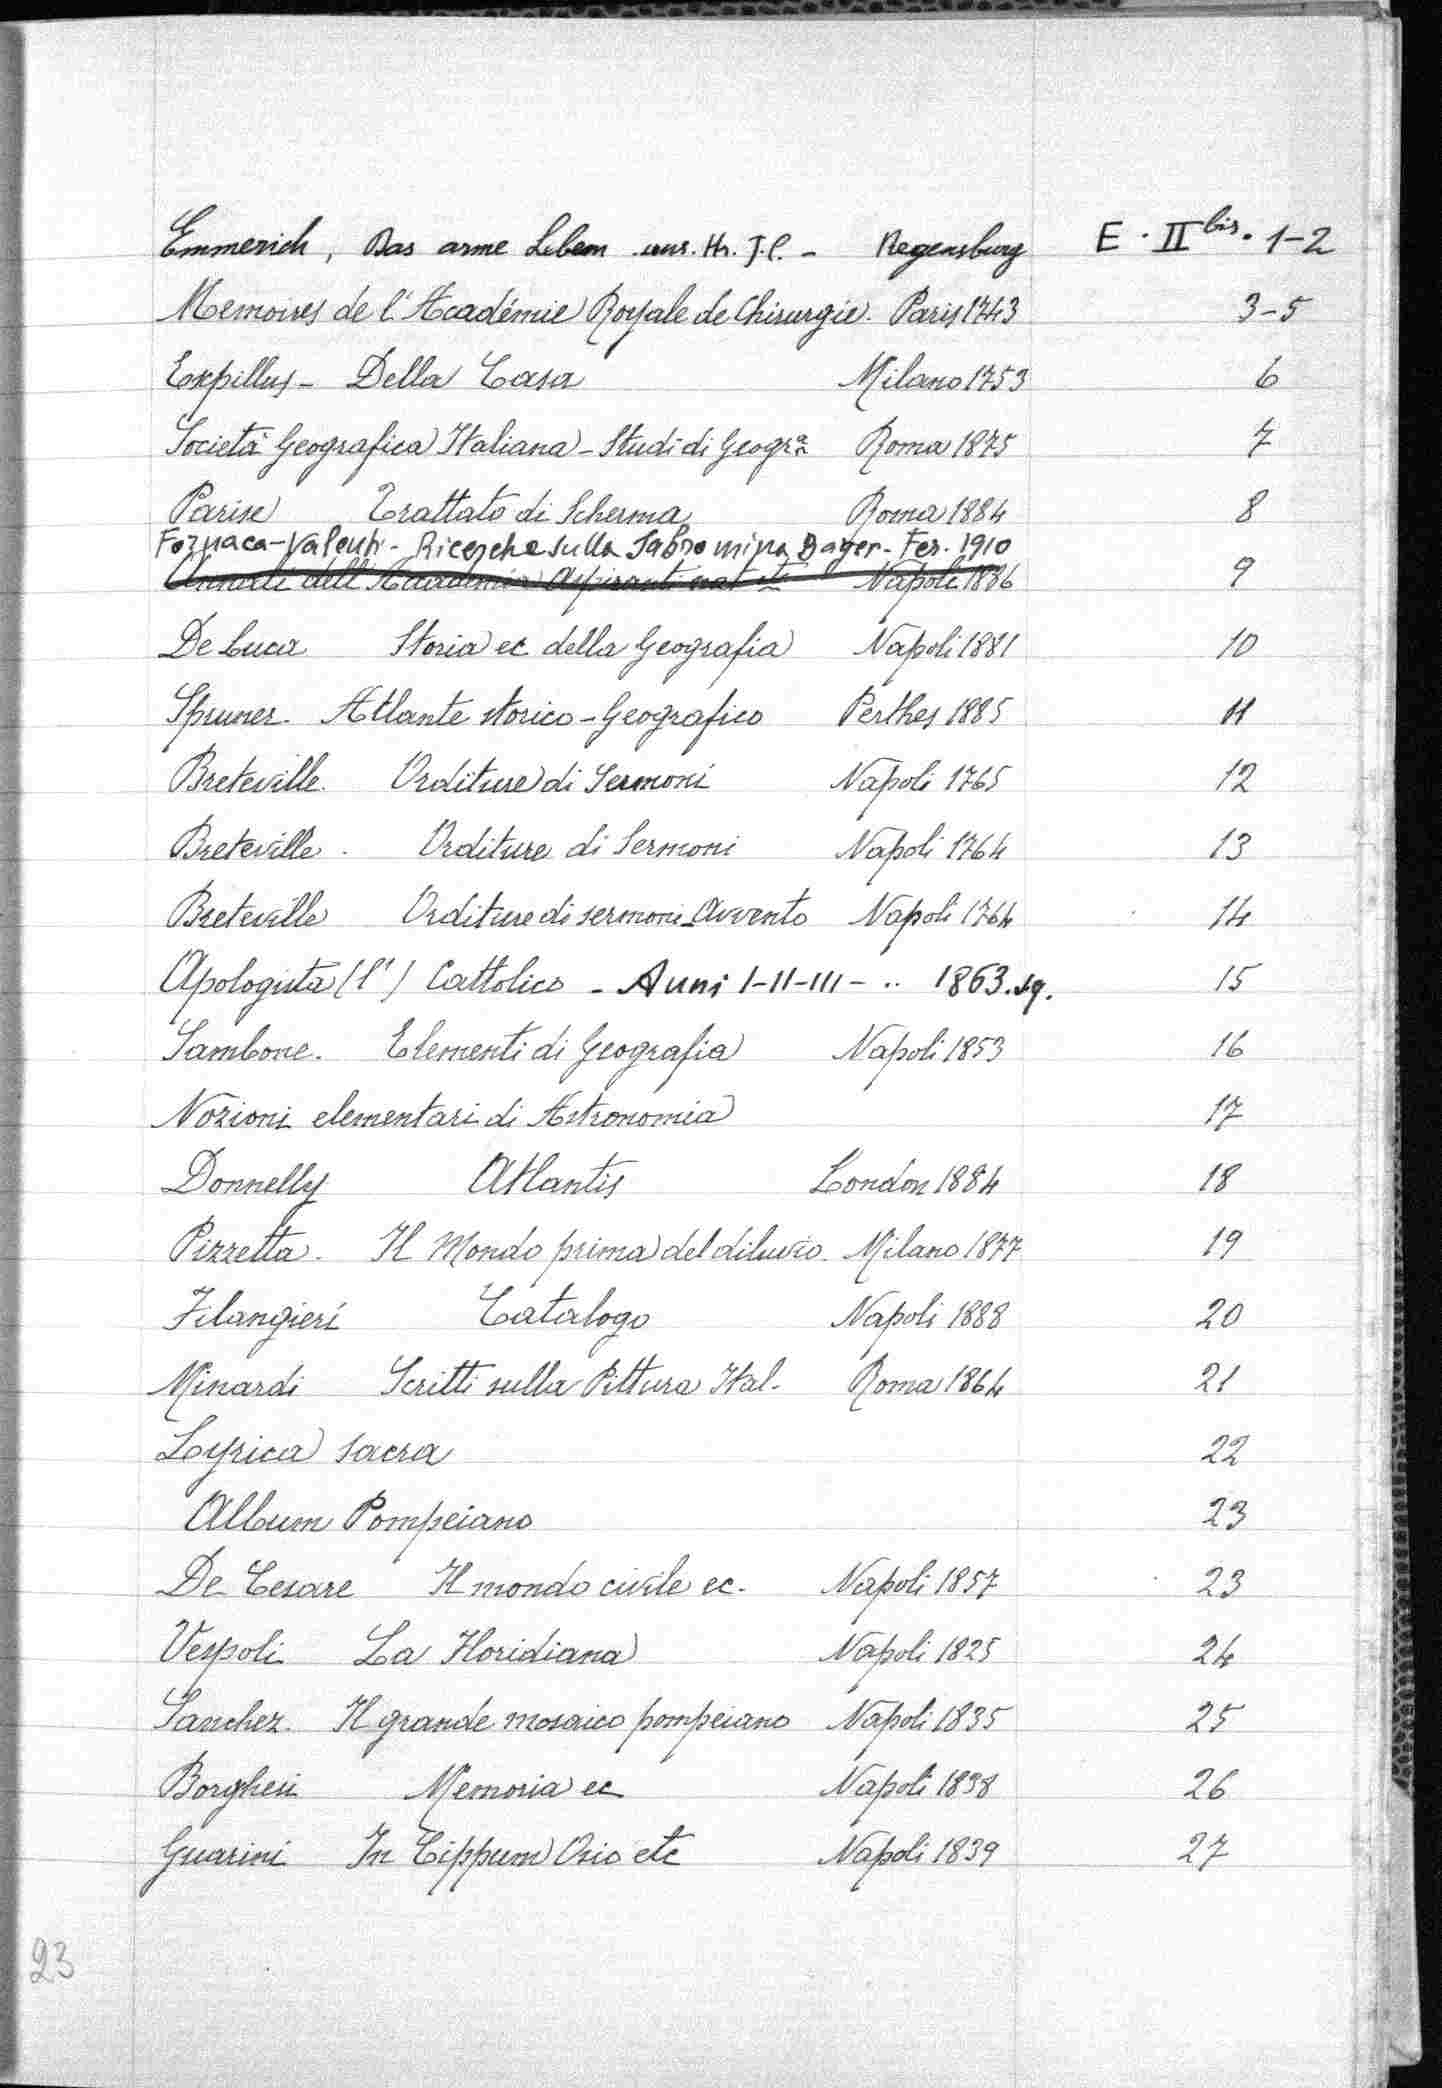 Emmerich, Das arme Leben uns. Hr. J. C. - Regensburg E. II bis. 1-2
Memoires de l'Académie Royale de Chirurgie. Paris 1743 3-5
Expilly - Della Casa Milano 1753 6
Società Geografica Italiana - Studi di Geogra Roma 1875 7
Parise Trattato di Scherma Roma 1884 8
Fornaca-Valenti - Ricerche sulla Sabromina Bayer - Fer. 1910
Annali dell'Accademia Aspiranti nat Napoli 1886 9
De Luca Storia ec della Geografia Napoli 1881 10
Spruner. Atlante storico-Geografico Perthes 1885 11
Breteville. Orditure di Sermoni Napoli 1765 12
Breteville. Orditure di Sermoni Napoli 1764 13
Breteville Orditure di sermoni_Avvento Napoli 1764 14
Apologista (l') Cattolico - Anni I-II-III - .. 1863. sq. 15
Sambone. Elementi di Geografia Napoli 1853 16
Nozioni elementari di Astronomia 17
Donnelly Atlantis London 1884 18
Pizzetta. Il Mondo prima del diluvio. Milano 1877 19
Filangieri Catalogo Napoli 1888 20
Minardi Scritti sulla Pittura Ital. Roma 1864 21
Lyrica sacra 22
Album Pompeiano 23
De Cesare Il mondo civile ec. Napoli 1857 23
Vespoli La Floridiana Napoli 1825 24
Sanchez. Il grande mosaico pompeiano Napoli 1835 25
Borghesi Memoria ec Napoli 1838 26
Guarini In Cippum Osio etc Napoli 1839 27
23